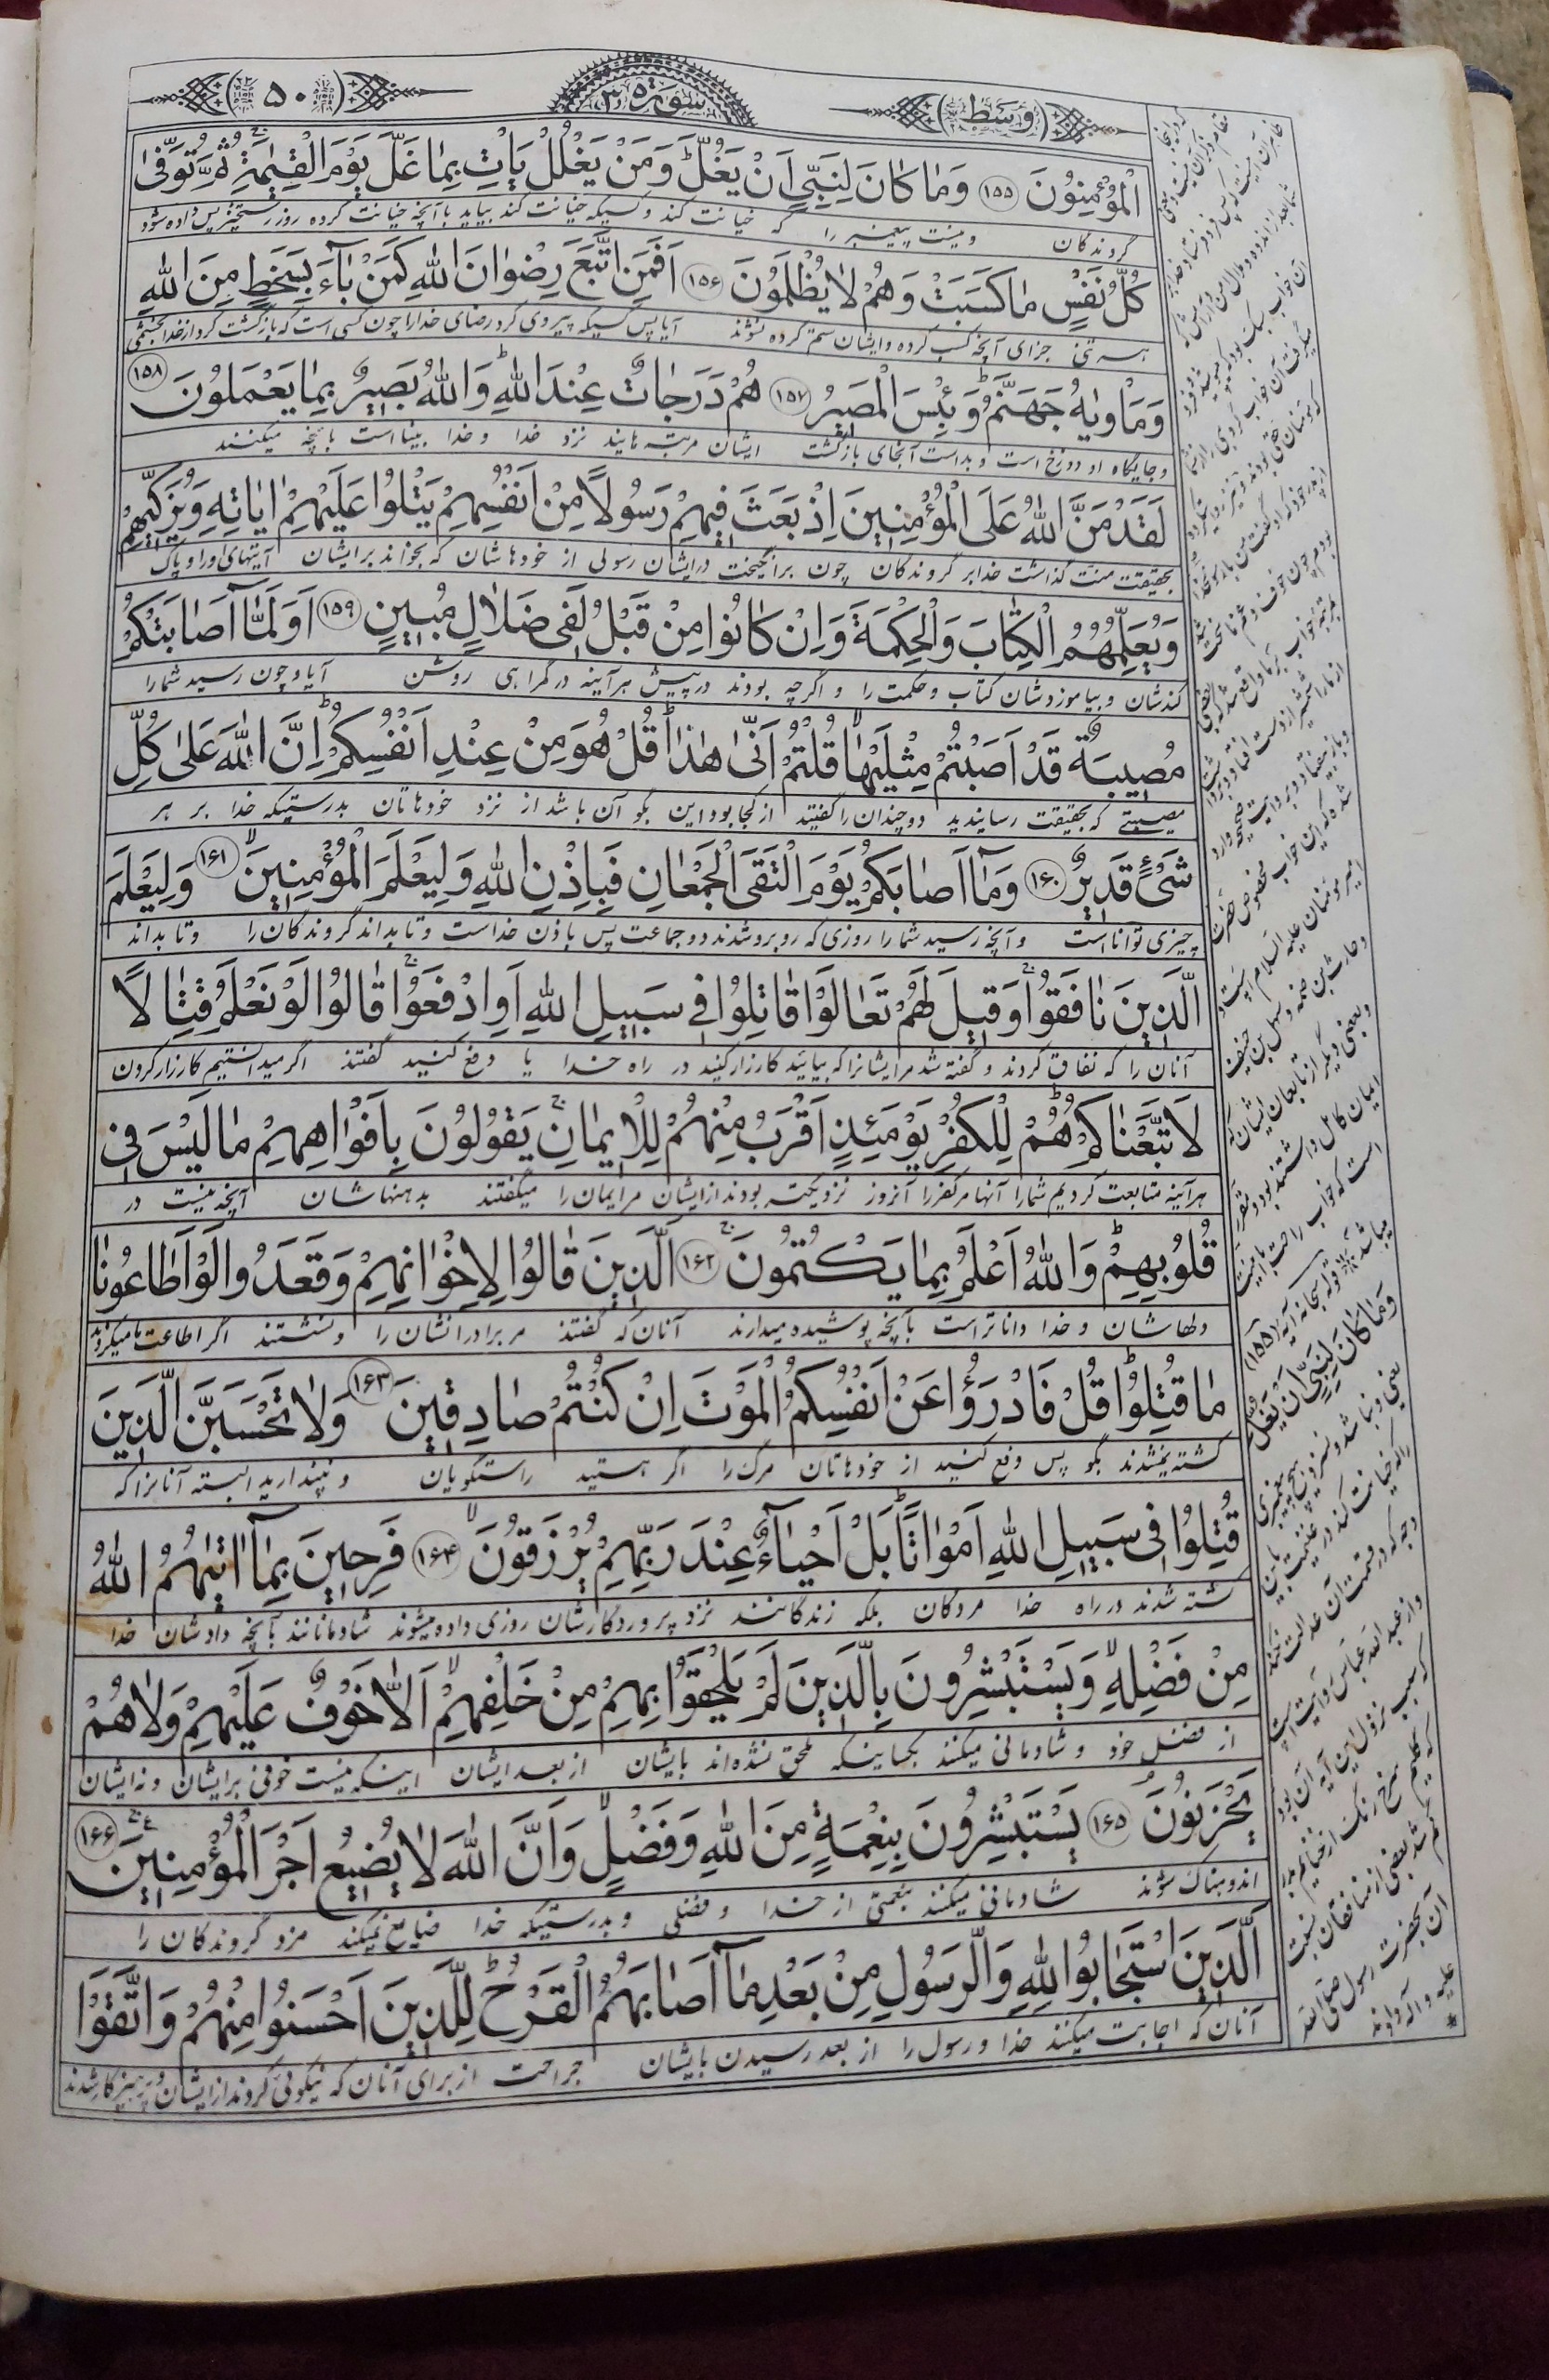 وسط
سورة ٣
٥٠
الْمُؤْمِنُونَ ١٥٥ وَمٰا كٰانَ لِنَبِيٍّ اَنْ يَغُلَّ وَمَنْ يَغْلُلْ يَاْتِ بِمٰا غَلَّ يَوْمَ الْقِيٰمَةِ ثُمَّ تُوَفّٰى
گروندگان ونیست پیغمبر را که خیانت کند وکسیکه خیانت کند بیاید باآنچه خیانت کرده روز رستخیز پس داده شود
كُلُّ نَفْسٍ مٰا كَسَبَتْ وَهُمْ لاٰ يُظْلَمُونَ ١٥۶ اَفَمَنِ اتَّبَعَ رِضْوٰانَ اللّٰهِ كَمَنْ بٰاۤءَ بِسَخَطٍ مِنَ اللّٰهِ
هر تنی جزای آنچه کسب کرده وایشان ستم کرده نشوند آیا پس کسیکه پیروی کرد رضای خدا را چون کسی است که بازگشت کرد از خدا بخشمی
وَمَاْوٰيهُ جَهَنَّمُ وَبِئْسَ الْمَصٖيرُ ١٥٧ هُمْ دَرَجٰاتٌ عِنْدَ اللّٰهِ وَاللّٰهُ بَصٖيرٌ بِمٰا يَعْمَلُونَ ١٥٨
وجایگاه او دوزخ است وبد است آنجای بازگشت ایشان مرتبه هایند نزد خدا وخدا بینا است بآنچه میکنند
لَقَدْ مَنَّ اللّٰهُ عَلَى الْمُؤْمِنٖينَ اِذْ بَعَثَ فٖيهِمْ رَسُولاً مِنْ اَنْفُسِهِمْ يَتْلُوا عَلَيْهِمْ اٰيٰاتِهٖ وَيُزَكّٖيهِمْ
بحقیقت منت گذاشت خدا بر گروندگان چون برانگیخت در ایشان رسولی از خودهاشان که بخواند بر ایشان آیتهای او را و پاک
وَيُعَلِّمُهُمُ الْكِتٰابَ وَالْحِكْمَةَ وَاِنْ كٰانُوا مِنْ قَبْلُ لَفٖى ضَلاٰلٍ مُبٖينٍ ١٥٩ اَوَلَمّٰاۤ اَصٰابَتْكُمْ
کندشان و بیاموزدشان کتاب وحکمت را و اگرچه بودند در پیش هرآینه در گمراهی روشن آیا و چون رسید شما را
مُصٖيبَةٌ قَدْ اَصَبْتُمْ مِثْلَيْهٰا قُلْتُمْ اَنّٰى هٰذٰا قُلْ هُوَ مِنْ عِنْدِ اَنْفُسِكُمْ اِنَّ اللّٰهَ عَلٰى كُلِّ
مصیبتی که بحقیقت رسانیدید دو چندان را گفتید از کجا بود این بگو آن باشد از نزد خودهاتان بدرستیکه خدا بر هر
شَىْءٍ قَدٖيرٌ ١۶٠ وَمٰاۤ اَصٰابَكُمْ يَوْمَ الْتَقَى الْجَمْعٰانِ فَبِاِذْنِ اللّٰهِ وَلِيَعْلَمَ الْمُؤْمِنٖينَ ١۶١ وَلِيَعْلَمَ
چیزی توانا است وآنچه رسید شما را روزی که روبرو شدند دو جماعت پس باذن خداست و تا بداند گروندگان را وتا بداند
الَّذٖينَ نٰافَقُوا وَقٖيلَ لَهُمْ تَعٰالَوْا قٰاتِلُوا فٖى سَبٖيلِ اللّٰهِ اَوِ ادْفَعُوا قٰالُوا لَوْ نَعْلَمُ قِتٰالاً
آنان را که نفاق کردند وگفته شد مر ایشانرا که بیائید کارزار کنید در راه خدا یا دفع کنید گفتند اگر میدانستیم کارزار کردن
لاَتَّبَعْنٰاكُمْ هُمْ لِلْكُفْرِ يَوْمَئِذٍ اَقْرَبُ مِنْهُمْ لِلْاٖيمٰانِ يَقُولُونَ بِاَفْوٰاهِهِمْ مٰا لَيْسَ فٖى
هرآینه متابعت کردیم شما را آنها مر کفر را آنروز نزدیکتر بودند از ایشان مر ایمان را میگفتند بدهنهاشان آنچه نیست در
قُلُوبِهِمْ وَاللّٰهُ اَعْلَمُ بِمٰا يَكْتُمُونَ ١۶٢ اَلَّذٖينَ قٰالُوا لِاِخْوٰانِهِمْ وَقَعَدُوا لَوْ اَطٰاعُونٰا
دلهاشان وخدا داناتر است بآنچه پوشیده میدارند آنان که گفتند مر برادرانشان را ونشستند اگر اطاعت ما میکردند
مٰا قُتِلُوا قُلْ فَادْرَؤُا عَنْ اَنْفُسِكُمُ الْمَوْتَ اِنْ كُنْتُمْ صٰادِقٖينَ ١۶٣ وَلاٰ تَحْسَبَنَّ الَّذٖينَ
کشته نمیشدند بگو پس دفع کنید از خودهاتان مرگ را اگر هستید راستگویان و نپندارید البته آنانرا که
قُتِلُوا فٖى سَبٖيلِ اللّٰهِ اَمْوٰاتًا بَلْ اَحْيٰاۤءٌ عِنْدَ رَبِّهِمْ يُرْزَقُونَ ١۶۴ فَرِحٖينَ بِمٰاۤ اٰتٰيهُمُ اللّٰهُ
کشته شدند در راه خدا مردگان بلکه زندگانند نزد پروردگارشان روزی داده میشوند شادمانانند بآنچه دادشان خدا
مِنْ فَضْلِهٖ وَيَسْتَبْشِرُونَ بِالَّذٖينَ لَمْ يَلْحَقُوا بِهِمْ مِنْ خَلْفِهِمْ اَلاّٰ خَوْفٌ عَلَيْهِمْ وَلاٰهُمْ
از فضل خود و شادمانی میکنند بکسانیکه ملحق نشده اند بایشان از بعد ایشان اینکه نیست خوفی بر ایشان ونه ایشان
يَحْزَنُونَ ١۶٥ يَسْتَبْشِرُونَ بِنِعْمَةٍ مِنَ اللّٰهِ وَفَضْلٍ وَاَنَّ اللّٰهَ لاٰ يُضٖيعُ اَجْرَ الْمُؤْمِنٖينَ ١۶۶
اندوهناک شوند شادمانی میکنند بنعمتی از خدا و فضلی و بدرستیکه خدا ضایع نمیکند مزد گروندگان را
اَلَّذٖينَ اسْتَجٰابُوا لِلّٰهِ وَالرَّسُولِ مِنْ بَعْدِ مٰاۤ اَصٰابَهُمُ الْقَرْحُ لِلَّذٖينَ اَحْسَنُوا مِنْهُمْ وَاتَّقَوْا
آنان که اجابت میکنند خدا و رسول را از بعد رسیدن بایشان جراحت از برای آنان که نیکوئی کردند از ایشان و پرهیزکار شدند
امیر مؤمنان علیه السلام است
وحارث بن صمه وسهل بن حنیف
وبعضی دیگر از تابعان ایشان که
ایمان کامل داشتند بود
است که خواب راحت
قوله سبحانه آیه (١٥٥)
وَمٰا كٰانَ لِنَبِيٍّ اَنْ يَغُلَّ
راکه خیانت کند در غنیمت
که سبب نزول این آیه آن بود
که گلیم سرخ رنگ از غنایم بدر
گم شد بعضی از منافقان نسبت
آن بحضرت رسول صلی الله
علیه وآله دادند